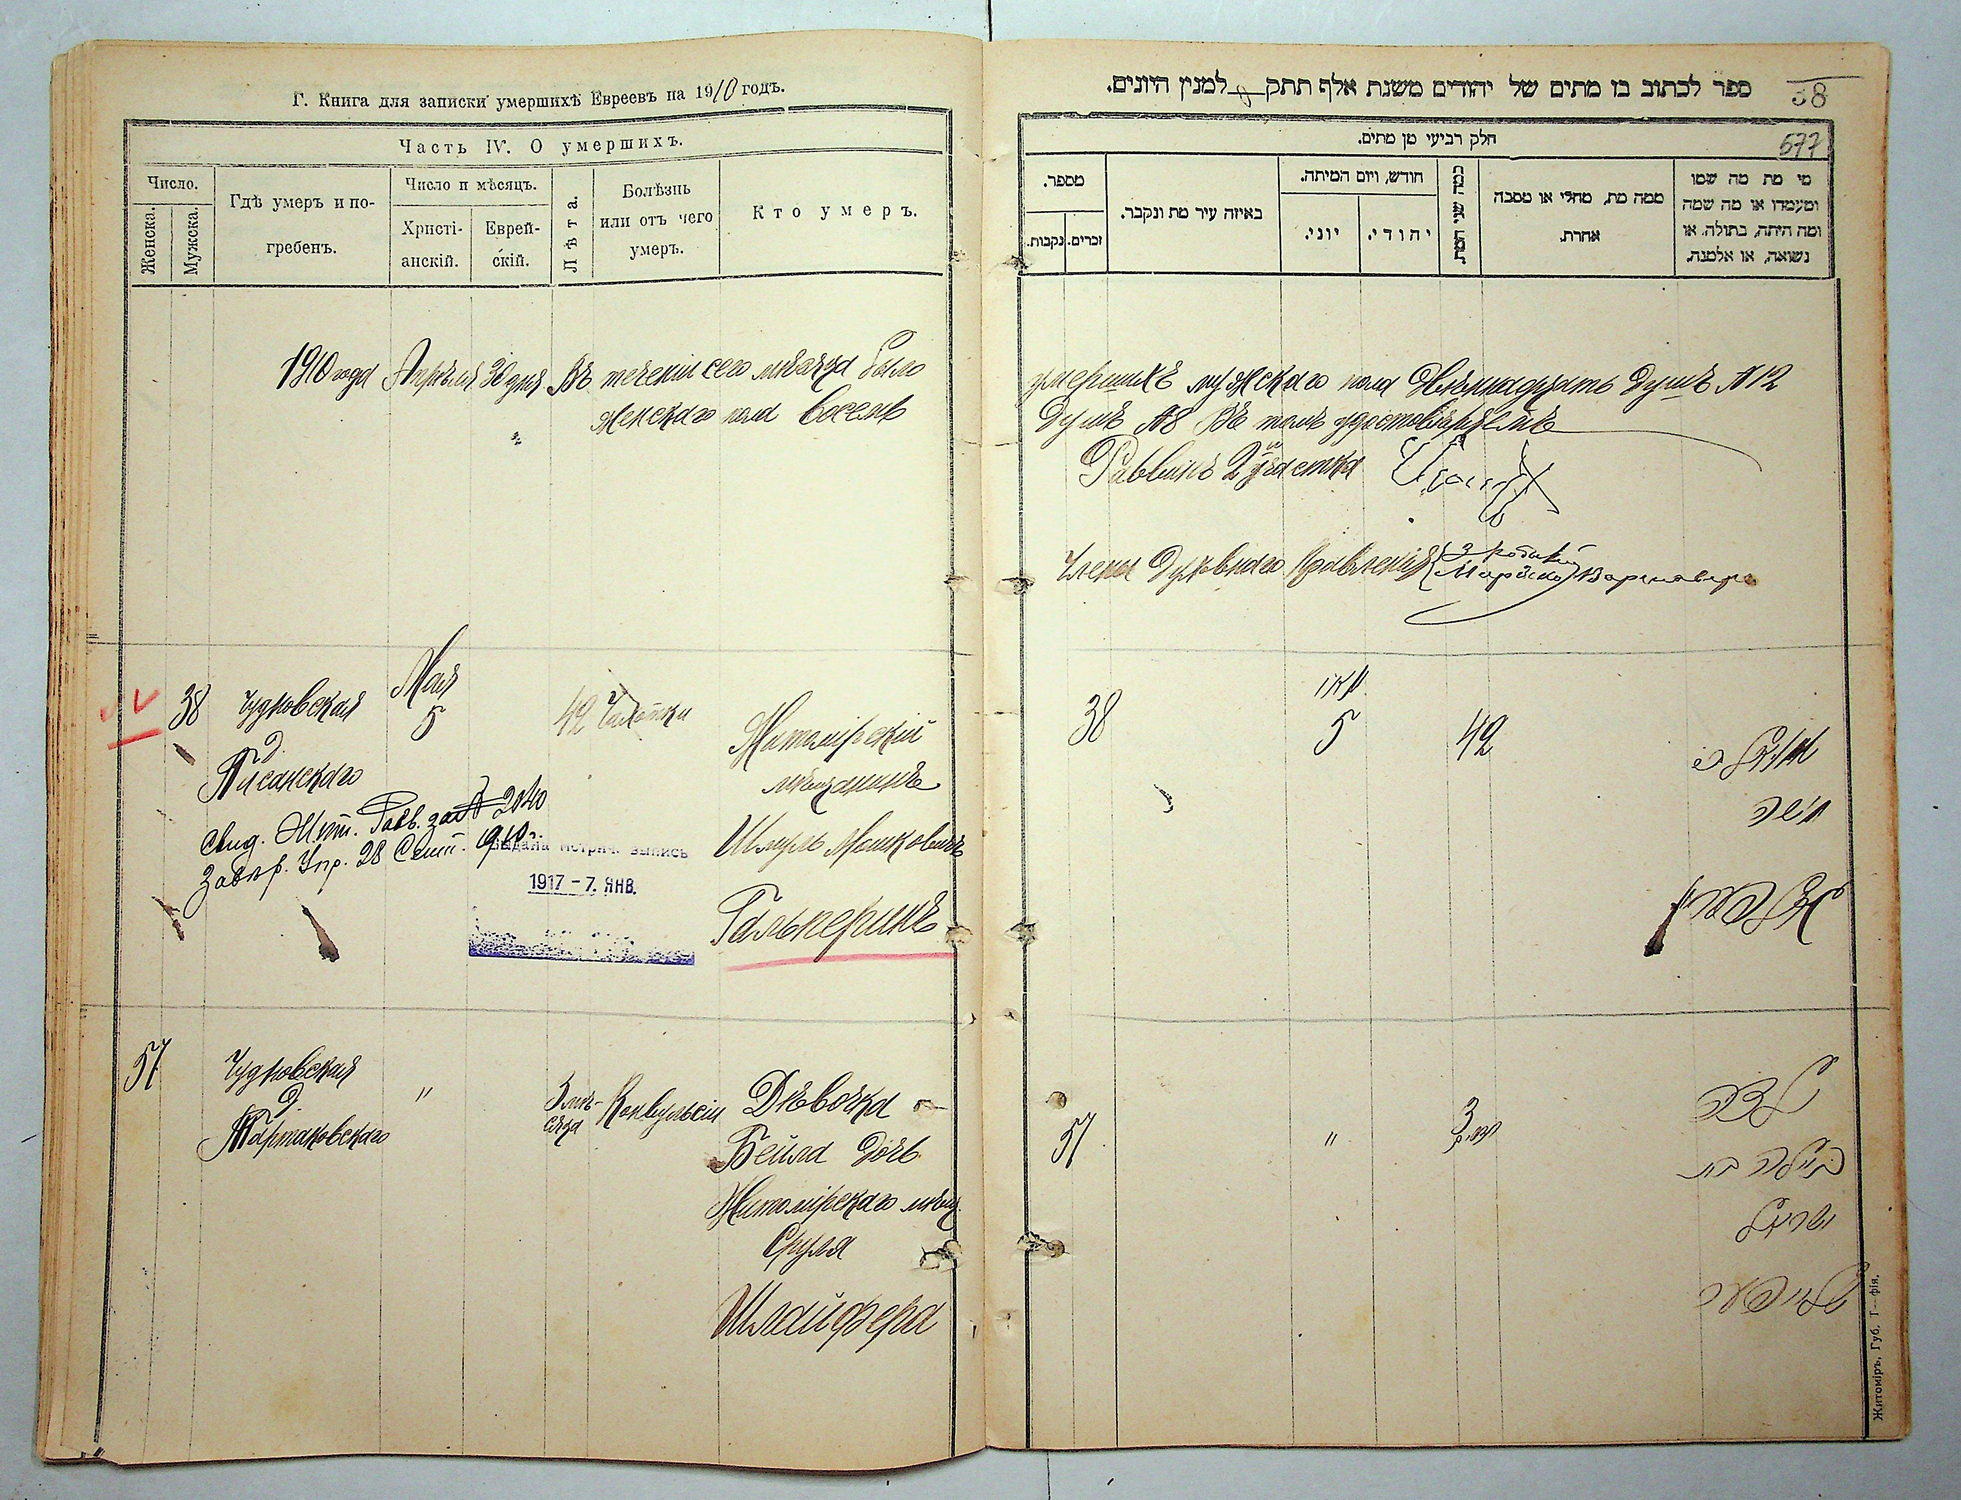 Г. Книга для записки умершихъ Евреевъ на 1910 годъ.
Часть IV. О умершихъ.
Число.
Женска.
Мужска.
Гдѣ умеръ и по-
гребенъ.
Число и мѣсяцъ.
Христі-
анскій.
Еврей-
скій.
Лѣта.
Болѣзнь
или отъ чего
умеръ.
Кто умеръ.
1910 года Апрѣля 30 дня Въ теченіи сего мѣсяца было
женскаго пола восемь
38
Чудновская
д.
Писанскаго
Мая
5
42
Чахотки
Житомірскій
мѣщанинъ
Шмуль Мошковичъ
Гальперинъ
Свид. Жит. Равв. за № 2040
28 Сент. 1910 г.
Выдана метрич. выпись
1917 - 7. ЯНВ.
51
Чудновская
д.
Тартаковскаго
"
3 мѣ-
сяца
Конвульсіи
Дѣвочка
Бейла дочь
Житомірскаго мѣщ.
Сруля
Шлайфера
ספר לכתוב בו מתים של יהודים משנת אלף תתק למנין היונים.
58
577
חלק רביעי מן מתים.
מספר.
נקבות.
זכרים.
באיזה עיר מת ונקבר.
חודש, ויום המיתה.
יוני.
יהודי.
כמה שני המת.
ממה מת, מחלי או מסבה
אחרת.
מי מת מה שמו
ומעמדו או מה שמה
ומה היתה, בתולה. או
נשואה, או אלמנה.
умершихъ мужскаго пола двѣнадцать душъ № 12
душъ № 8 Въ томъ удостовѣряемъ
Раввинъ 2го участка
Члены Духовнаго Правленія
38
מאי
5
42
משה
51
"
3
ילדה
ביילה בת
ישראל
שלייפער
Житоміръ, Губ. Т—фія.